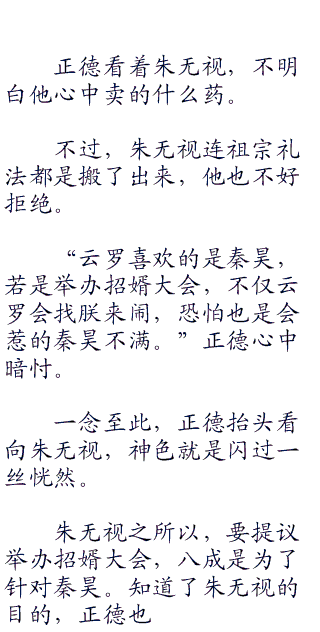 正德看着朱无视，不明
白他心中卖的什么药。
不过，朱无视连祖宗礼
法都是搬了出来，他也不好
拒绝。
“云罗喜欢的是秦昊，
若是举办招婿大会，不仅云
罗会找朕来闹，恐怕也是会
惹的秦昊不满。”正德心中
暗忖。
一念至此，正德抬头看
向朱无视，神色就是闪过一
丝恍然。
朱无视之所以，要提议
举办招婿大会，八成是为了
针对秦昊。知道了朱无视的
目的，正德也